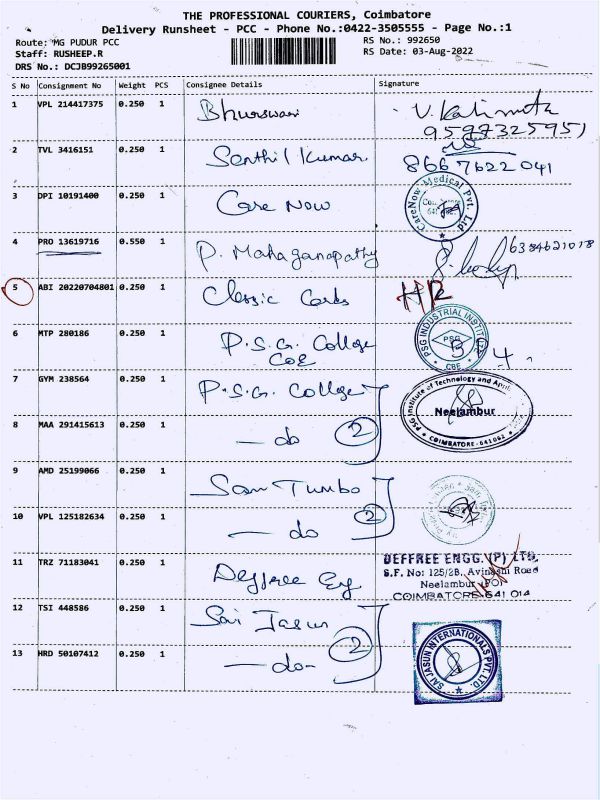 THE PROFESSIONAL COURIERS, Coimbatore
Delivery Runsheet - PCC - Phone No.:0422-3505555 - Page No.:1
Route: MG PUDUR PCC RS No.: 992650
Staff: RUSHEEP.R RS Date: 03-Aug-2022
DRS No.: DCJB99265001
S No Consignment No Weight PCS Consignee Details Signature
1 VPL 214417375 0.250 1
9597325951
2 TVL 3416151 0.250 1 Senthil Kumar 8667622041
3 DPI 10191400 0.250 1 Care Now CareNow Medical Pvt. Ltd
4 PRO 13619716 0.550 1 P. Mahaganapathy 6384621018
5 ABI 20220704801 0.250 1 Classic Cards
6 MTP 280186 0.250 1 P.S.G. College PSG INDUSTRIAL INSTITUTE PSG CBE
COE
7 GYM 238564 0.250 1 P.S.G. College PSG Institute of Technology and
Neelambur
COIMBATORE-641062
8 MAA 291415613 0.250 1 — do 2
9 AMD 25199066 0.250 1 San Turbo
10 VPL 125182634 0.250 1 — do 2
11 TRZ 71183041 0.250 1 Deffree Eng DEFFREE ENGG. (P) LTD,
S.F. No: 125/2B, Avinashi Road
Neelambur (PO)
COIMBATORE-641 014
12 TSI 448586 0.250 1 Sai Jasun
13 HRD 50107412 0.250 1 — do - 2 SAI JASUN INTERNATIONALS PVT. LTD.